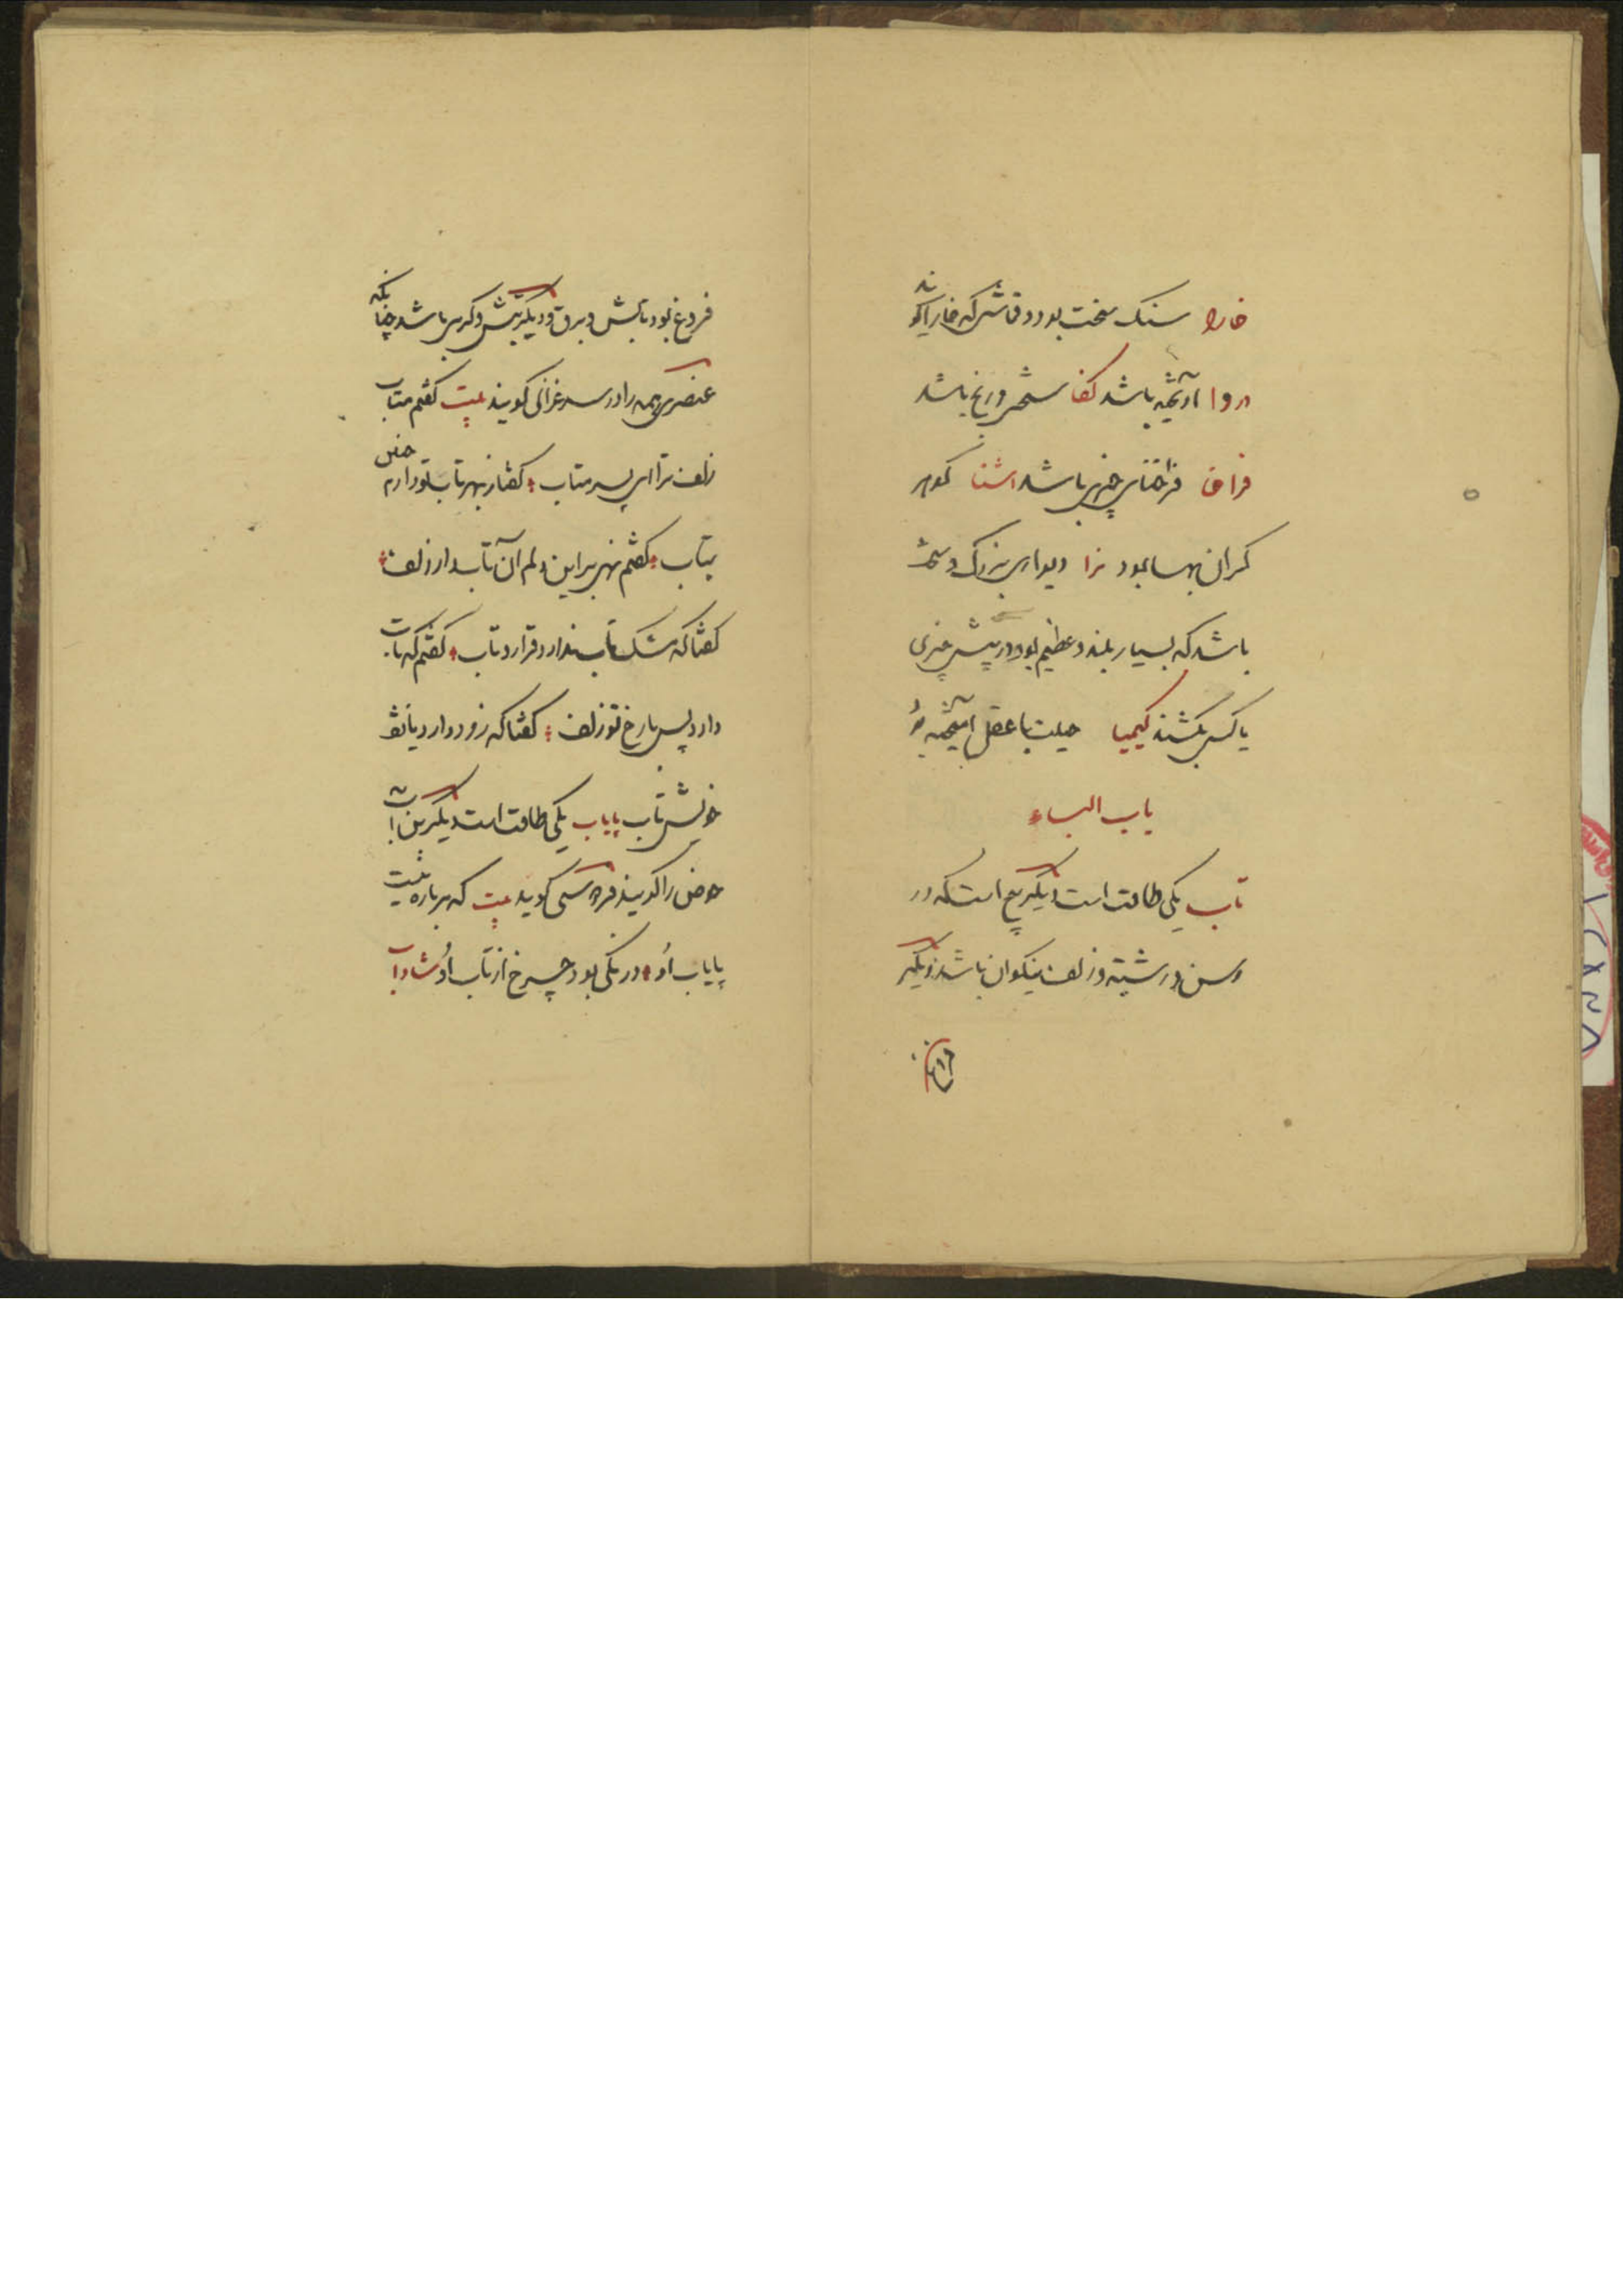 خارا سنک سخت بود و قماشی که خارا کویند
دروا آویخته باشد کفا سختی و رنج باشد
فراخا فراخنای چیزی باشد اشنا کوهر
کران بها بود نرا دیواری بزرک و سخت
باشد که بسیار بلند و عظیم بود و در پیش چیزی
یا کسی بکشند کیمیا حیلت با عقل آمیخته بود
باب الباء
تاب یکی طاقت است دیگر پیچ است که در
رسن و رشته و زلف نیکوان باشد و دیگر
فروغ بود تابش و برق و دیگر تبش و گرمی باشد چنانکه
عنصری همه را در سه غزلی کویند بیت کفتم متاب
زلف ترا ای پسر متاب کفتا ز بهر تاب تو دارم چنین
بتاب کفتم نهی براین دلم آن تابدار زلف
کفتا که مشک ناب ندارد قرار و تاب کفتم که تاب
دارد پس با رخ تو زلف کفتا که زود دارد با تف
خویش تاب پایاب یکی طاقت است دیگر بن آب
حوض را کویند فردوسی کوید بیت که هر باره نیست
پایاب او درنکی بود چرخ از تاب او شاداب